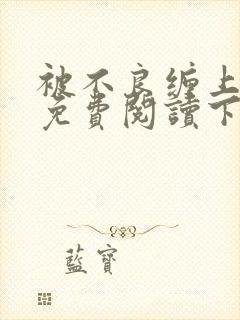 被不良缠上
免費閱讀下
藍寶